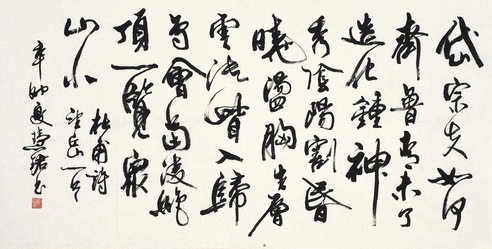 岱宗夫如何
齊魯青未了
造化鍾神
秀陰陽割昏
曉盪胸生層
雲決眥入歸
鳥會當凌絕
頂一覽眾
山小
杜甫詩
望岳一首
辛卯夏
书